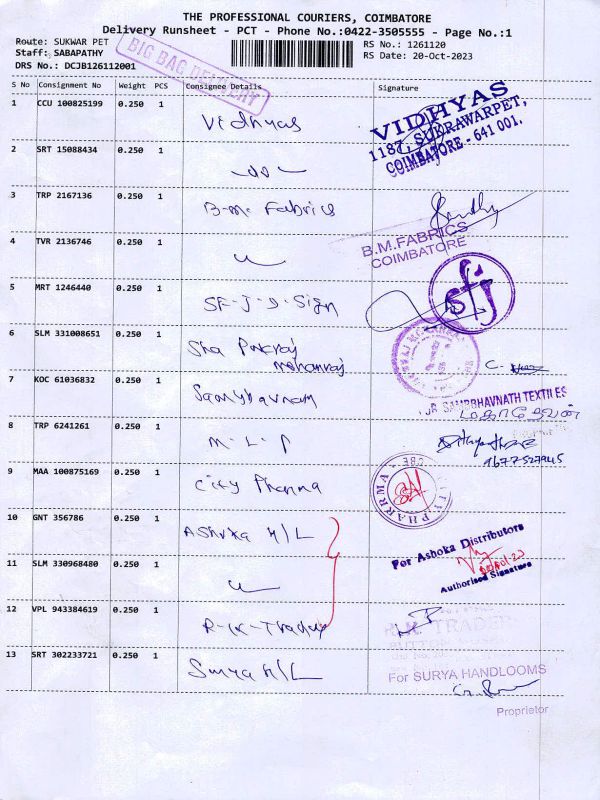 THE PROFESSIONAL COURIERS, COIMBATORE
Delivery Runsheet - PCT - Phone No.:0422-3505555 - Page No.:1
Route: SUKWAR PET
Staff: SABAPATHY
DRS No.: DCJB126112001
RS No.: 1261120
RS Date: 20-Oct-2023
BIG BAG DELIVERY
S No Consignment No Weight PCS Consignee Details Signature
1 CCU 100825199 0.250 1 Vidhyas
VIDHYAS
1187, SUKRAWARPET,
COIMBATORE - 641 001.
2 SRT 15088434 0.250 1
3 TRP 2167136 0.250 1 B-M. Fabrics
B.M.FABRICS
COIMBATORE
4 TVR 2136746 0.250 1
5 MRT 1246440 0.250 1 SF-J-D-Sign
sfj
6 SLM 331008651 0.250 1 Sha Pukraj
mohanraj
7 KOC 61036832 0.250 1 Sambhavnam
JR SAMBBHAVNATH TEXTILES
8 TRP 6241261 0.250 1 M-L-P
9677527945
9 MAA 100875169 0.250 1 City Pharma
10 GNT 356786 0.250 1 Ashoka H/L
For Ashoka Distributors
Authorised Signature
11 SLM 330968480 0.250 1
12 VPL 943384619 0.250 1 R-K-Trades
13 SRT 302233721 0.250 1 Surya H/L
For SURYA HANDLOOMS
Proprietor